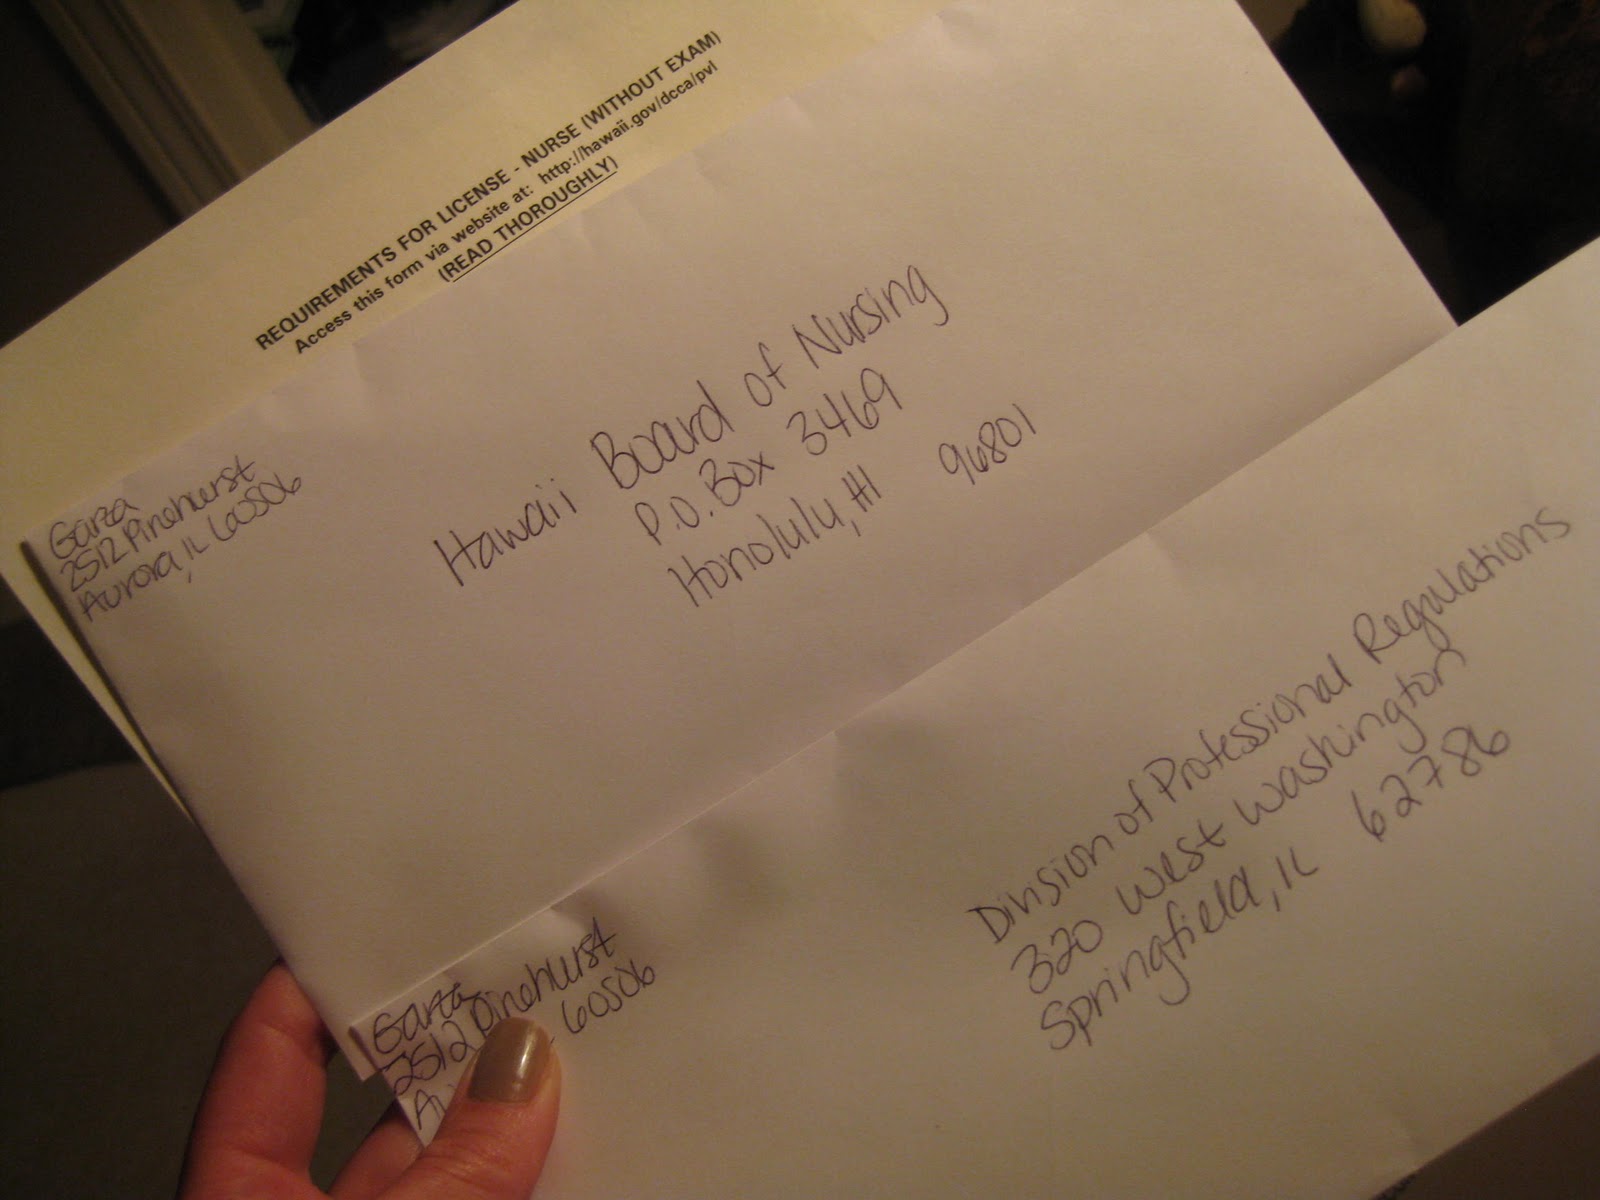 REQUIREMENTS FOR LICENSE - NURSE (WITHOUT EXAM)
Access this form via website at: http://hawaii.gov/dcca/pvl
(READ THOROUGHLY)
Garza
2512 Pinehurst
Aurora, IL 60506
Hawaii Board of Nursing
P.O. Box 3469
Honolulu, HI 96801
Garza
2512 Pinehurst
60506
Division of Professional Regulations
320 West Washington
Springfield, IL 62786